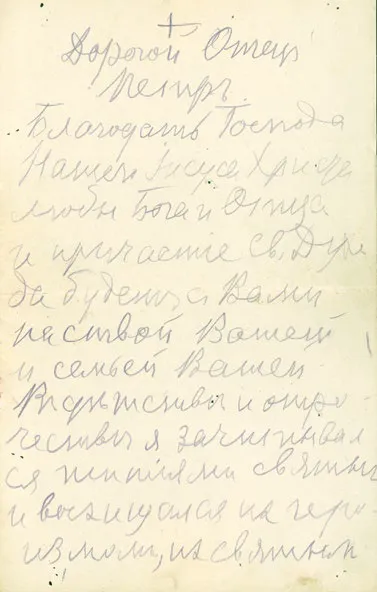 Дорогой Отецъ
Петръ
Благодать Господа
Нашего Iисуса Христа
любы Бога и Отца
и причастiе Св. Духа
да будетъ съ Вами
паствой Вашей
и семьей Вашей
В дѣтствѣ и отро-
чествѣ я зачитывал
ся житiями святых
и восхищался их геро-
измом, их святым